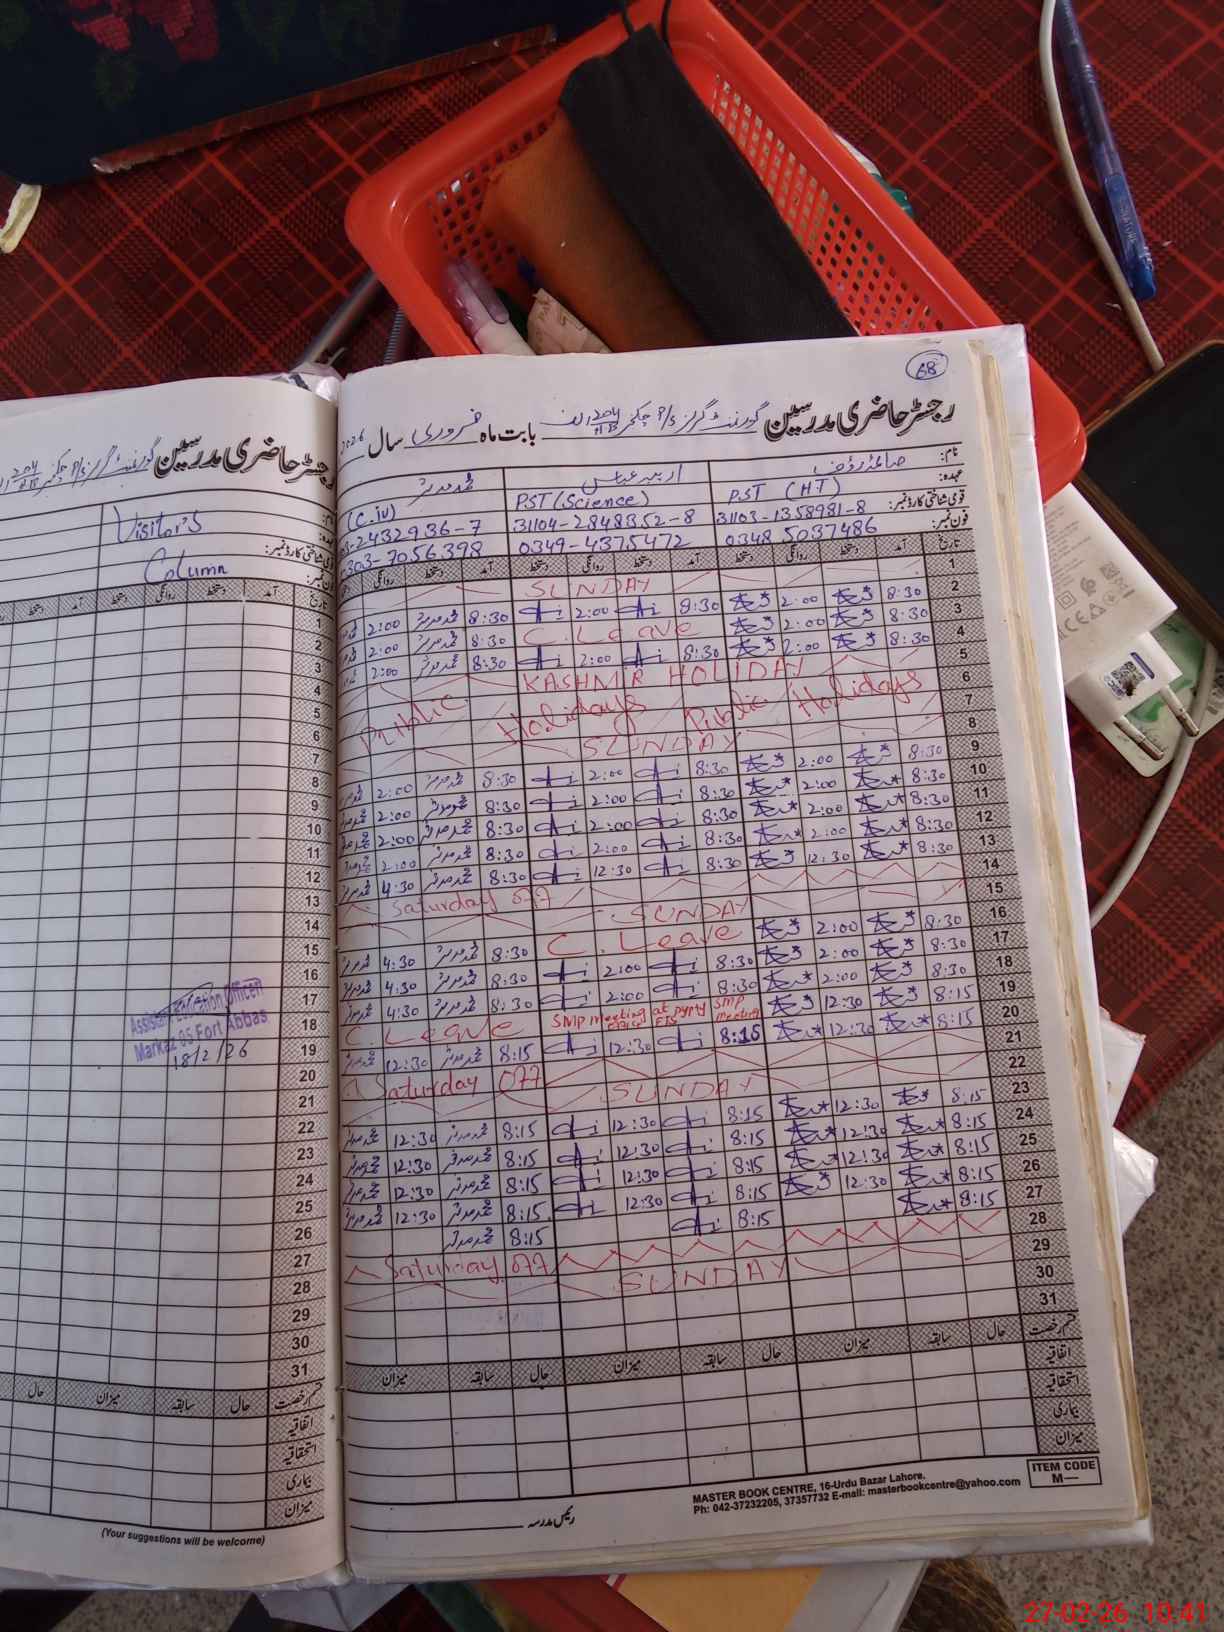 68
رجسٹر حاضری مدرسین گورنمنٹ گرلز P/S چک نمبر 204 بابت ماہ فروری سال 2026
نام:
عہدہ: PST (HT) PST (Science) (C.iv)
قومی شناختی کارڈ نمبر: 31103-1358981-8 31104-2848352-8 2432936-7
فون نمبر: 0348 5037486 0349-4375472 303-7056398
تاریخ آمد دستخط روانگی دستخط آمد دستخط روانگی دستخط آمد دستخط روانگی
1 SUNDAY
2 8:30 2:00 8:30 2:00 8:30 2:00
3 8:30 2:00 C. Leave 8:30 2:00
4 8:30 2:00 8:30 2:00 8:30 2:00
5 KASHMIR HOLIDAY
6 Public Holidays Public Holidays
7
8 SUNDAY
9 8:30 2:00 8:30 2:00 8:30 2:00
10 8:30 2:00 8:30 2:00 8:30 2:00
11 8:30 2:00 8:30 2:00 8:30 2:00
12 8:30 2:00 8:30 2:00 8:30 2:00
13 8:30 12:30 8:30 12:30 8:30 4:30
14 Saturday off
15 SUNDAY
16 8:30 2:00 C. Leave 8:30 4:30
17 8:30 2:00 8:30 2:00 8:30 4:30
18 8:30 2:00 8:30 2:00 8:30 4:30
19 8:15 12:30 SMP meeting at SMP meeting C. Leave
20 8:15 12:30 8:15 12:30 8:15 12:30
21 Saturday off
22 SUNDAY
23 8:15 12:30 8:15 12:30 8:15 12:30
24 8:15 12:30 8:15 12:30 8:15 12:30
25 8:15 12:30 8:15 12:30 8:15 12:30
26 8:15 12:30 8:15 12:30 8:15 12:30
27 8:15 8:15 8:15
28 Saturday off
29 SUNDAY
30
31
قسم رخصت حال سابقہ میزان حال سابقہ میزان حال سابقہ میزان
اتفاقیہ
استحقاقیہ
بیماری
میزان
ITEM CODE
M—
MASTER BOOK CENTRE, 16-Urdu Bazar Lahore.
Ph: 042-37232205, 37357732 E-mail: masterbookcentre@yahoo.com
رئیس مدرسہ
رجسٹر حاضری مدرسین گورنمنٹ گرلز P/S چک نمبر 204
نام:
Visitor's
عہدہ:
قومی شناختی کارڈ نمبر:
Column
فون نمبر:
تاریخ آمد دستخط روانگی دستخط آمد دستخط
1
2
3
4
5
6
7
8
9
10
11
12
13
14
15
16
17
18
19
20
21
22
23
24
25
26
27
28
29
30
31
Assistant Education Officer
Markaz 05 Fort Abbas
18/2/26
قسم رخصت حال سابقہ میزان حال
اتفاقیہ
استحقاقیہ
بیماری
میزان
(Your suggestions will be welcome)
27-02-26 10:41